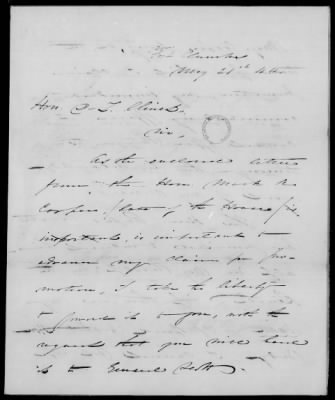 May 21st 46
Hon. D. L. Clinch.
Sir,
As the enclosed letter
from the Hon. Mark A.
Cooper (late of the House) is
important, is important to
advance my claims for pro-
motion, I take the liberty
to forward it to you, with the
request that you will hand
it to General Scott.